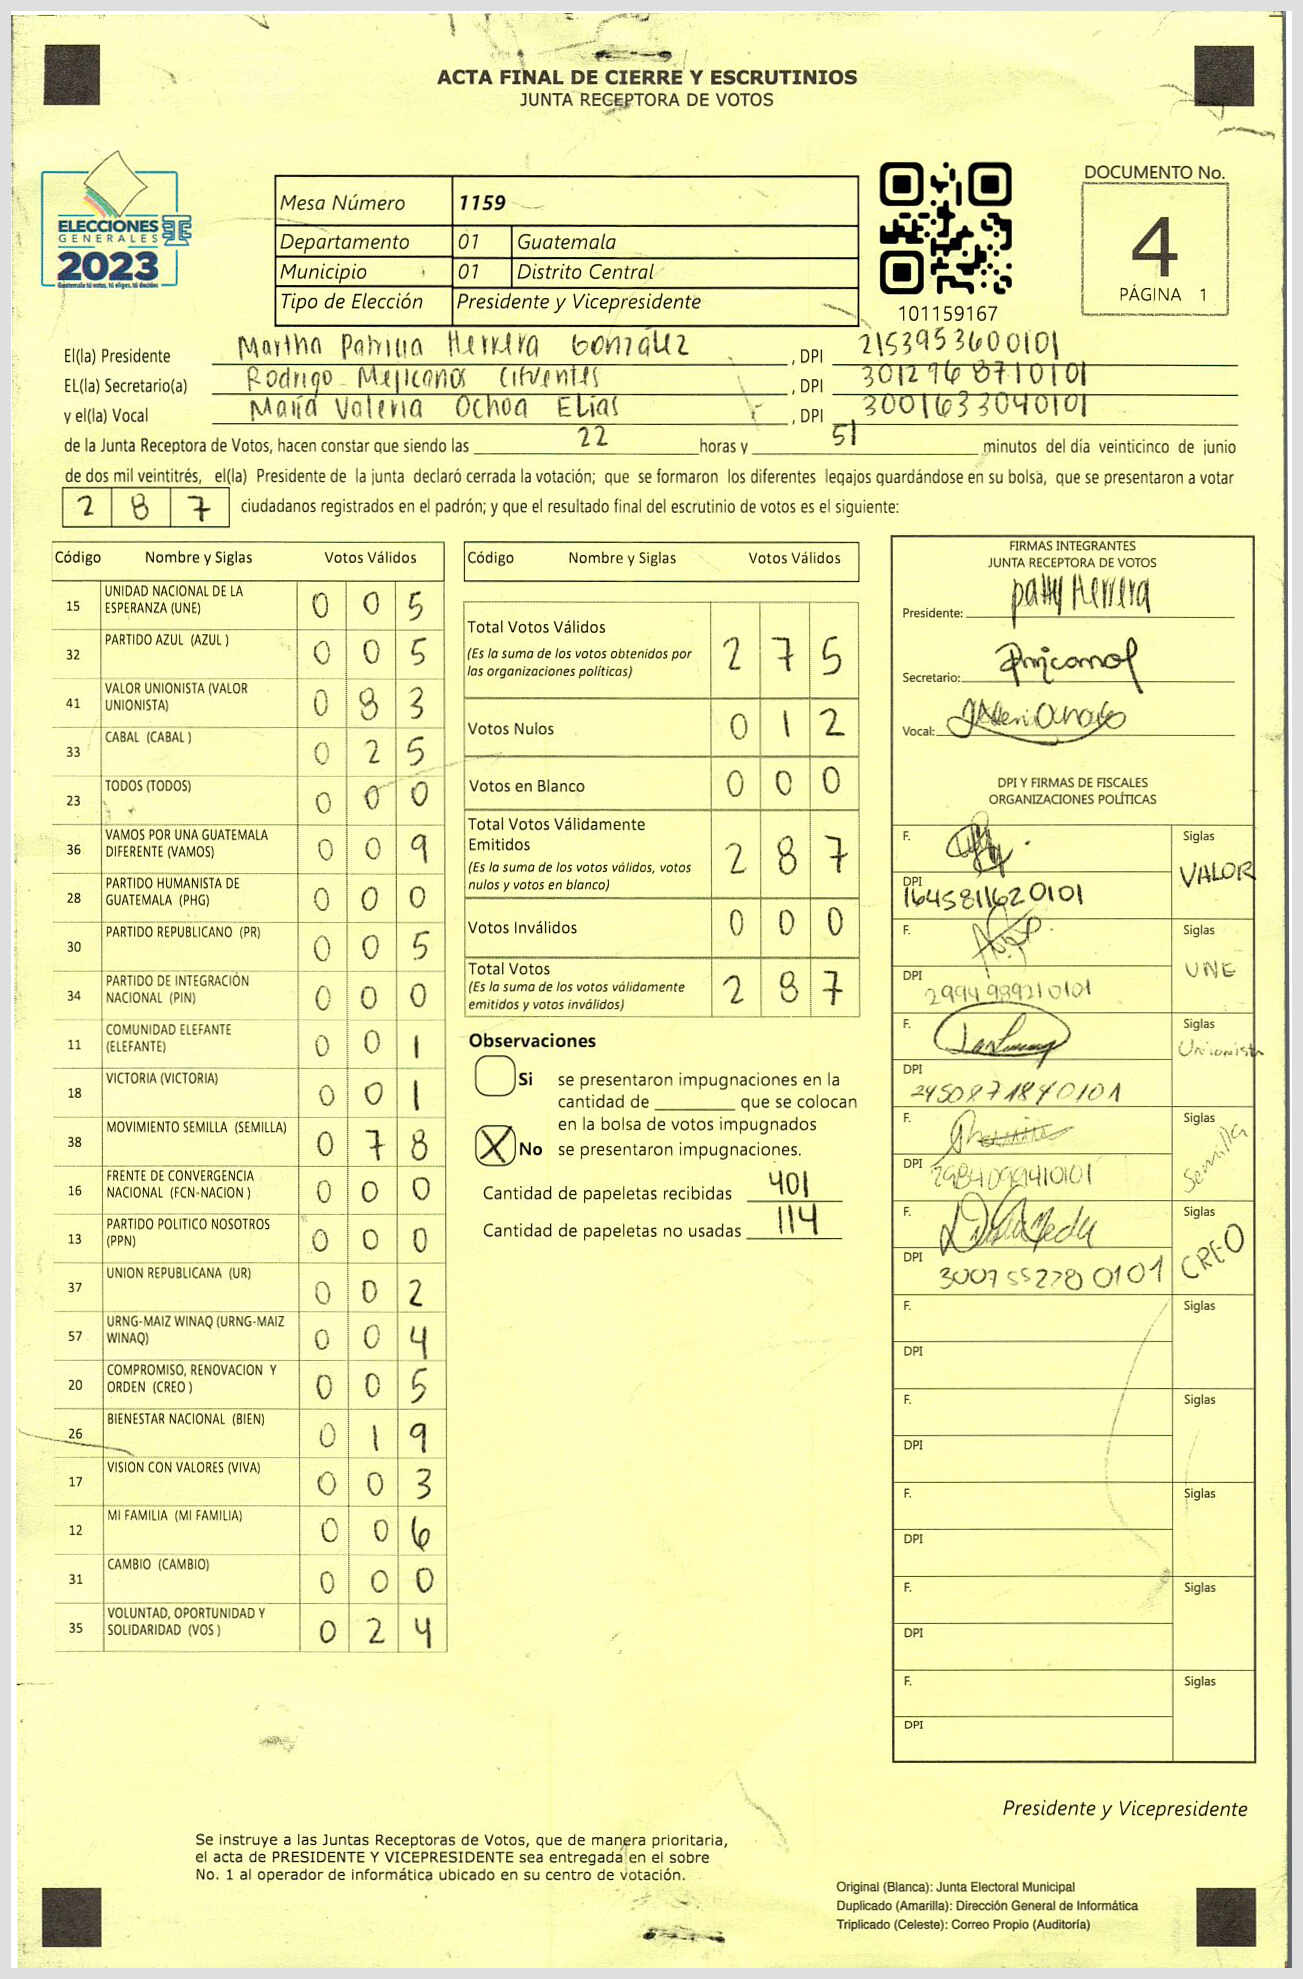 ACTA FINAL DE CIERRE Y ESCRUTINIOS
JUNTA RECEPTORA DE VOTOS
ELECCIONES
GENERALES
2023
Guatemala tú votas, tú eliges, tú decides
Mesa Número 1159
Departamento 01 Guatemala
Municipio 01 Distrito Central
Tipo de Elección Presidente y Vicepresidente
101159167
DOCUMENTO No.
4
PÁGINA 1
El(la) Presidente Martha Patricia Herrera González, DPI 2153953600101
EL(la) Secretario(a) Rodrigo Mejicanos Cifuentes, DPI 3012968710101
y el(la) Vocal María Valeria Ochoa Elías, DPI 3001633040101
de la Junta Receptora de Votos, hacen constar que siendo las 22 horas y 51 minutos del día veinticinco de junio
de dos mil veintitrés, el(la) Presidente de la junta declaró cerrada la votación; que se formaron los diferentes legajos guardándose en su bolsa, que se presentaron a votar
2 8 7 ciudadanos registrados en el padrón; y que el resultado final del escrutinio de votos es el siguiente:
Código Nombre y Siglas Votos Válidos
15 UNIDAD NACIONAL DE LA ESPERANZA (UNE) 0 0 5
32 PARTIDO AZUL (AZUL ) 0 0 5
41 VALOR UNIONISTA (VALOR UNIONISTA) 0 8 3
33 CABAL (CABAL ) 0 2 5
23 TODOS (TODOS) 0 0 0
36 VAMOS POR UNA GUATEMALA DIFERENTE (VAMOS) 0 0 9
28 PARTIDO HUMANISTA DE GUATEMALA (PHG) 0 0 0
30 PARTIDO REPUBLICANO (PR) 0 0 5
34 PARTIDO DE INTEGRACIÓN NACIONAL (PIN) 0 0 0
11 COMUNIDAD ELEFANTE (ELEFANTE) 0 0 1
18 VICTORIA (VICTORIA) 0 0 1
38 MOVIMIENTO SEMILLA (SEMILLA) 0 7 8
16 FRENTE DE CONVERGENCIA NACIONAL (FCN-NACION ) 0 0 0
13 PARTIDO POLITICO NOSOTROS (PPN) 0 0 0
37 UNION REPUBLICANA (UR) 0 0 2
57 URNG-MAIZ WINAQ (URNG-MAIZ WINAQ) 0 0 4
20 COMPROMISO, RENOVACION Y ORDEN (CREO ) 0 0 5
26 BIENESTAR NACIONAL (BIEN) 0 1 9
17 VISION CON VALORES (VIVA) 0 0 3
12 MI FAMILIA (MI FAMILIA) 0 0 6
31 CAMBIO (CAMBIO) 0 0 0
35 VOLUNTAD, OPORTUNIDAD Y SOLIDARIDAD (VOS ) 0 2 4
Código Nombre y Siglas Votos Válidos
Total Votos Válidos 2 7 5
(Es la suma de los votos obtenidos por
las organizaciones políticas)
Votos Nulos 0 1 2
Votos en Blanco 0 0 0
Total Votos Válidamente
Emitidos 2 8 7
(Es la suma de los votos válidos, votos
nulos y votos en blanco)
Votos Inválidos 0 0 0
Total Votos 2 8 7
(Es la suma de los votos válidamente
emitidos y votos inválidos)
Observaciones
Si se presentaron impugnaciones en la
cantidad de ________ que se colocan
en la bolsa de votos impugnados
X No se presentaron impugnaciones.
Cantidad de papeletas recibidas 401
Cantidad de papeletas no usadas 114
FIRMAS INTEGRANTES
JUNTA RECEPTORA DE VOTOS
Presidente: Patty Herrera
Secretario:
Vocal:
DPI Y FIRMAS DE FISCALES
ORGANIZACIONES POLÍTICAS
F. Siglas
DPI 1645811620101 VALOR
F. Siglas
DPI 2994989210101 UNE
F. Siglas
DPI 2450871840101 Unionista
F. Siglas
DPI Semilla
F. Siglas
DPI 3007552780101 CREO
F. Siglas
DPI
F. Siglas
DPI
F. Siglas
DPI
F. Siglas
DPI
F. Siglas
DPI
Presidente y Vicepresidente
Se instruye a las Juntas Receptoras de Votos, que de manera prioritaria,
el acta de PRESIDENTE Y VICEPRESIDENTE sea entregada en el sobre
No. 1 al operador de informática ubicado en su centro de votación.
Original (Blanca): Junta Electoral Municipal
Duplicado (Amarilla): Dirección General de Informática
Triplicado (Celeste): Correo Propio (Auditoría)